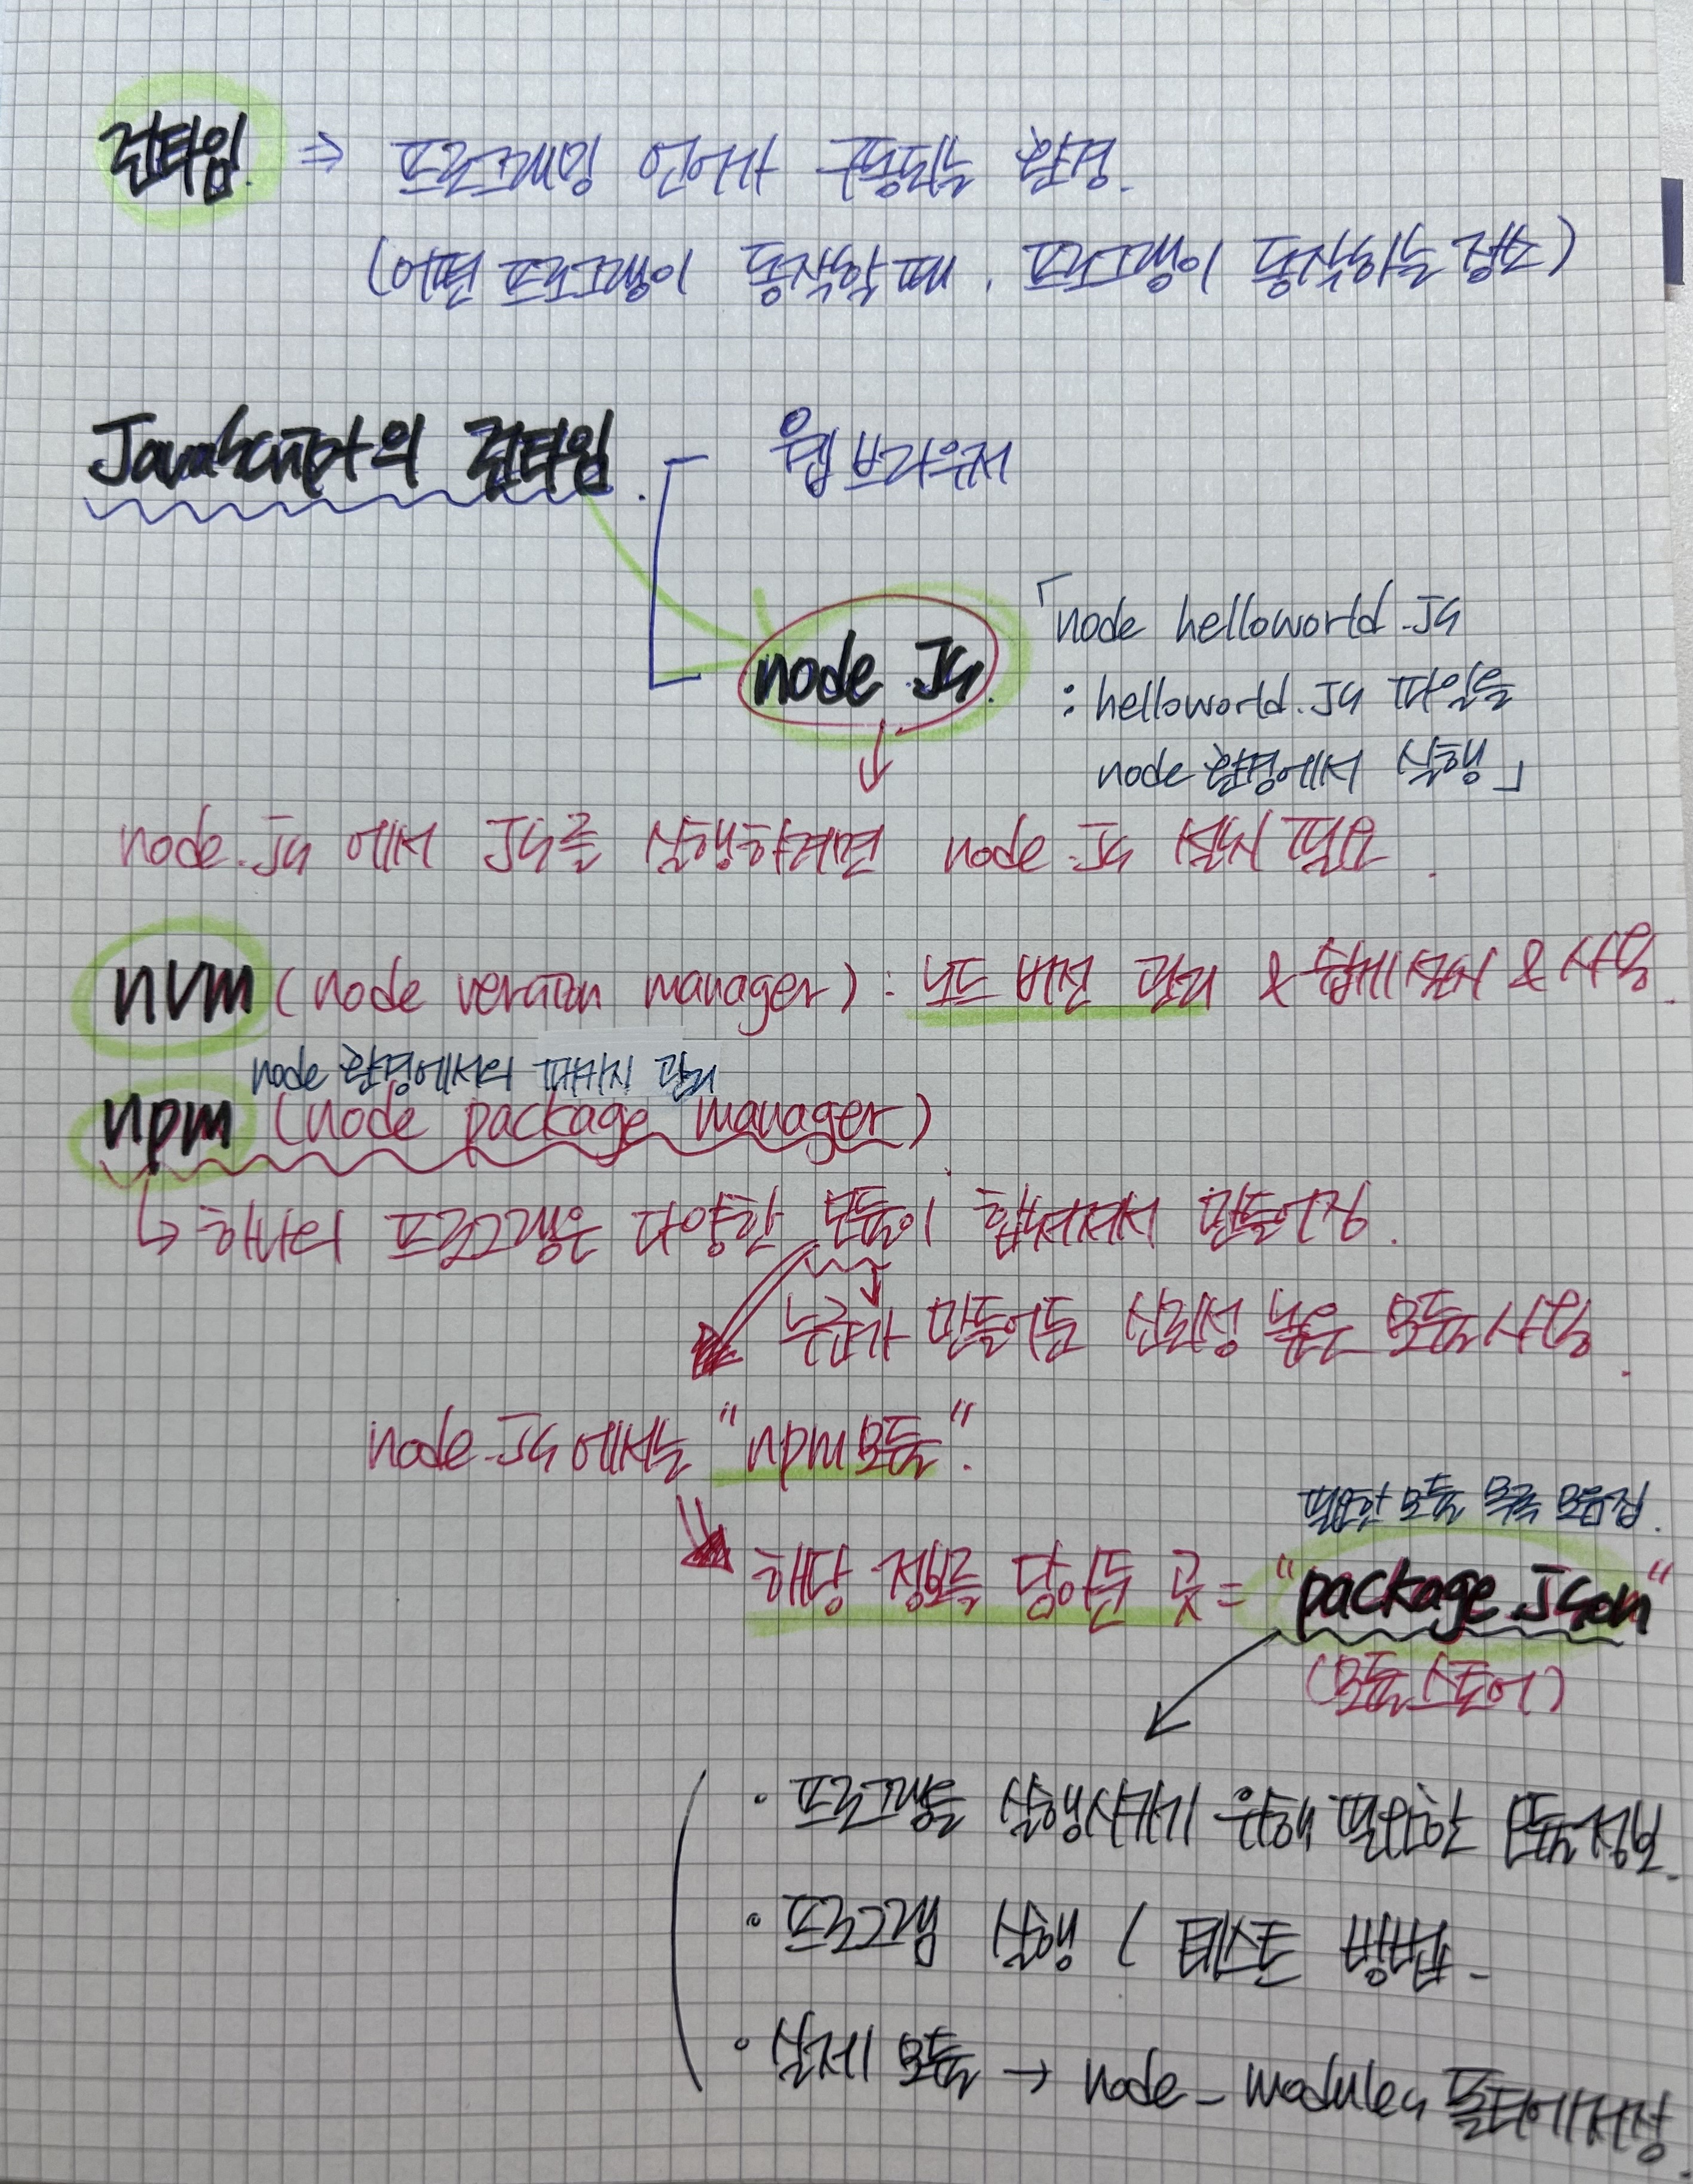 런타임. ⇒ 프로그래밍 언어가 구동되는 환경.
(어떤 프로그램이 동작할 때, 프로그램이 동작하는 장소)
JavaScript의 런타임.
웹 브라우저
node.Js.
「node helloworld.Js
: helloworld.Js 파일을
node 환경에서 실행」
node.Js 에서 Js를 실행하려면 node.Js 설치 필요.
nvm (node version manager) : 노드 버전 관리 & 쉽게 설치 & 사용.
node 환경에서의 패키지 관리
npm (node package manager).
↳ 하나의 프로그램은 다양한 모듈이 합쳐져서 만들어짐.
누군가 만들어둔 신뢰성 높은 모듈 사용.
node.Js에서는 "npm모듈".
필요한 모듈 목록 모음집.
해당 정보를 담아둔 곳 = "package.Json"
(모듈스토어)
• 프로그램을 실행시키기 위해 필요한 모듈정보.
• 프로그램 실행 / 테스트 방법.
• 실제 모듈 → node_modules 폴더에 저장